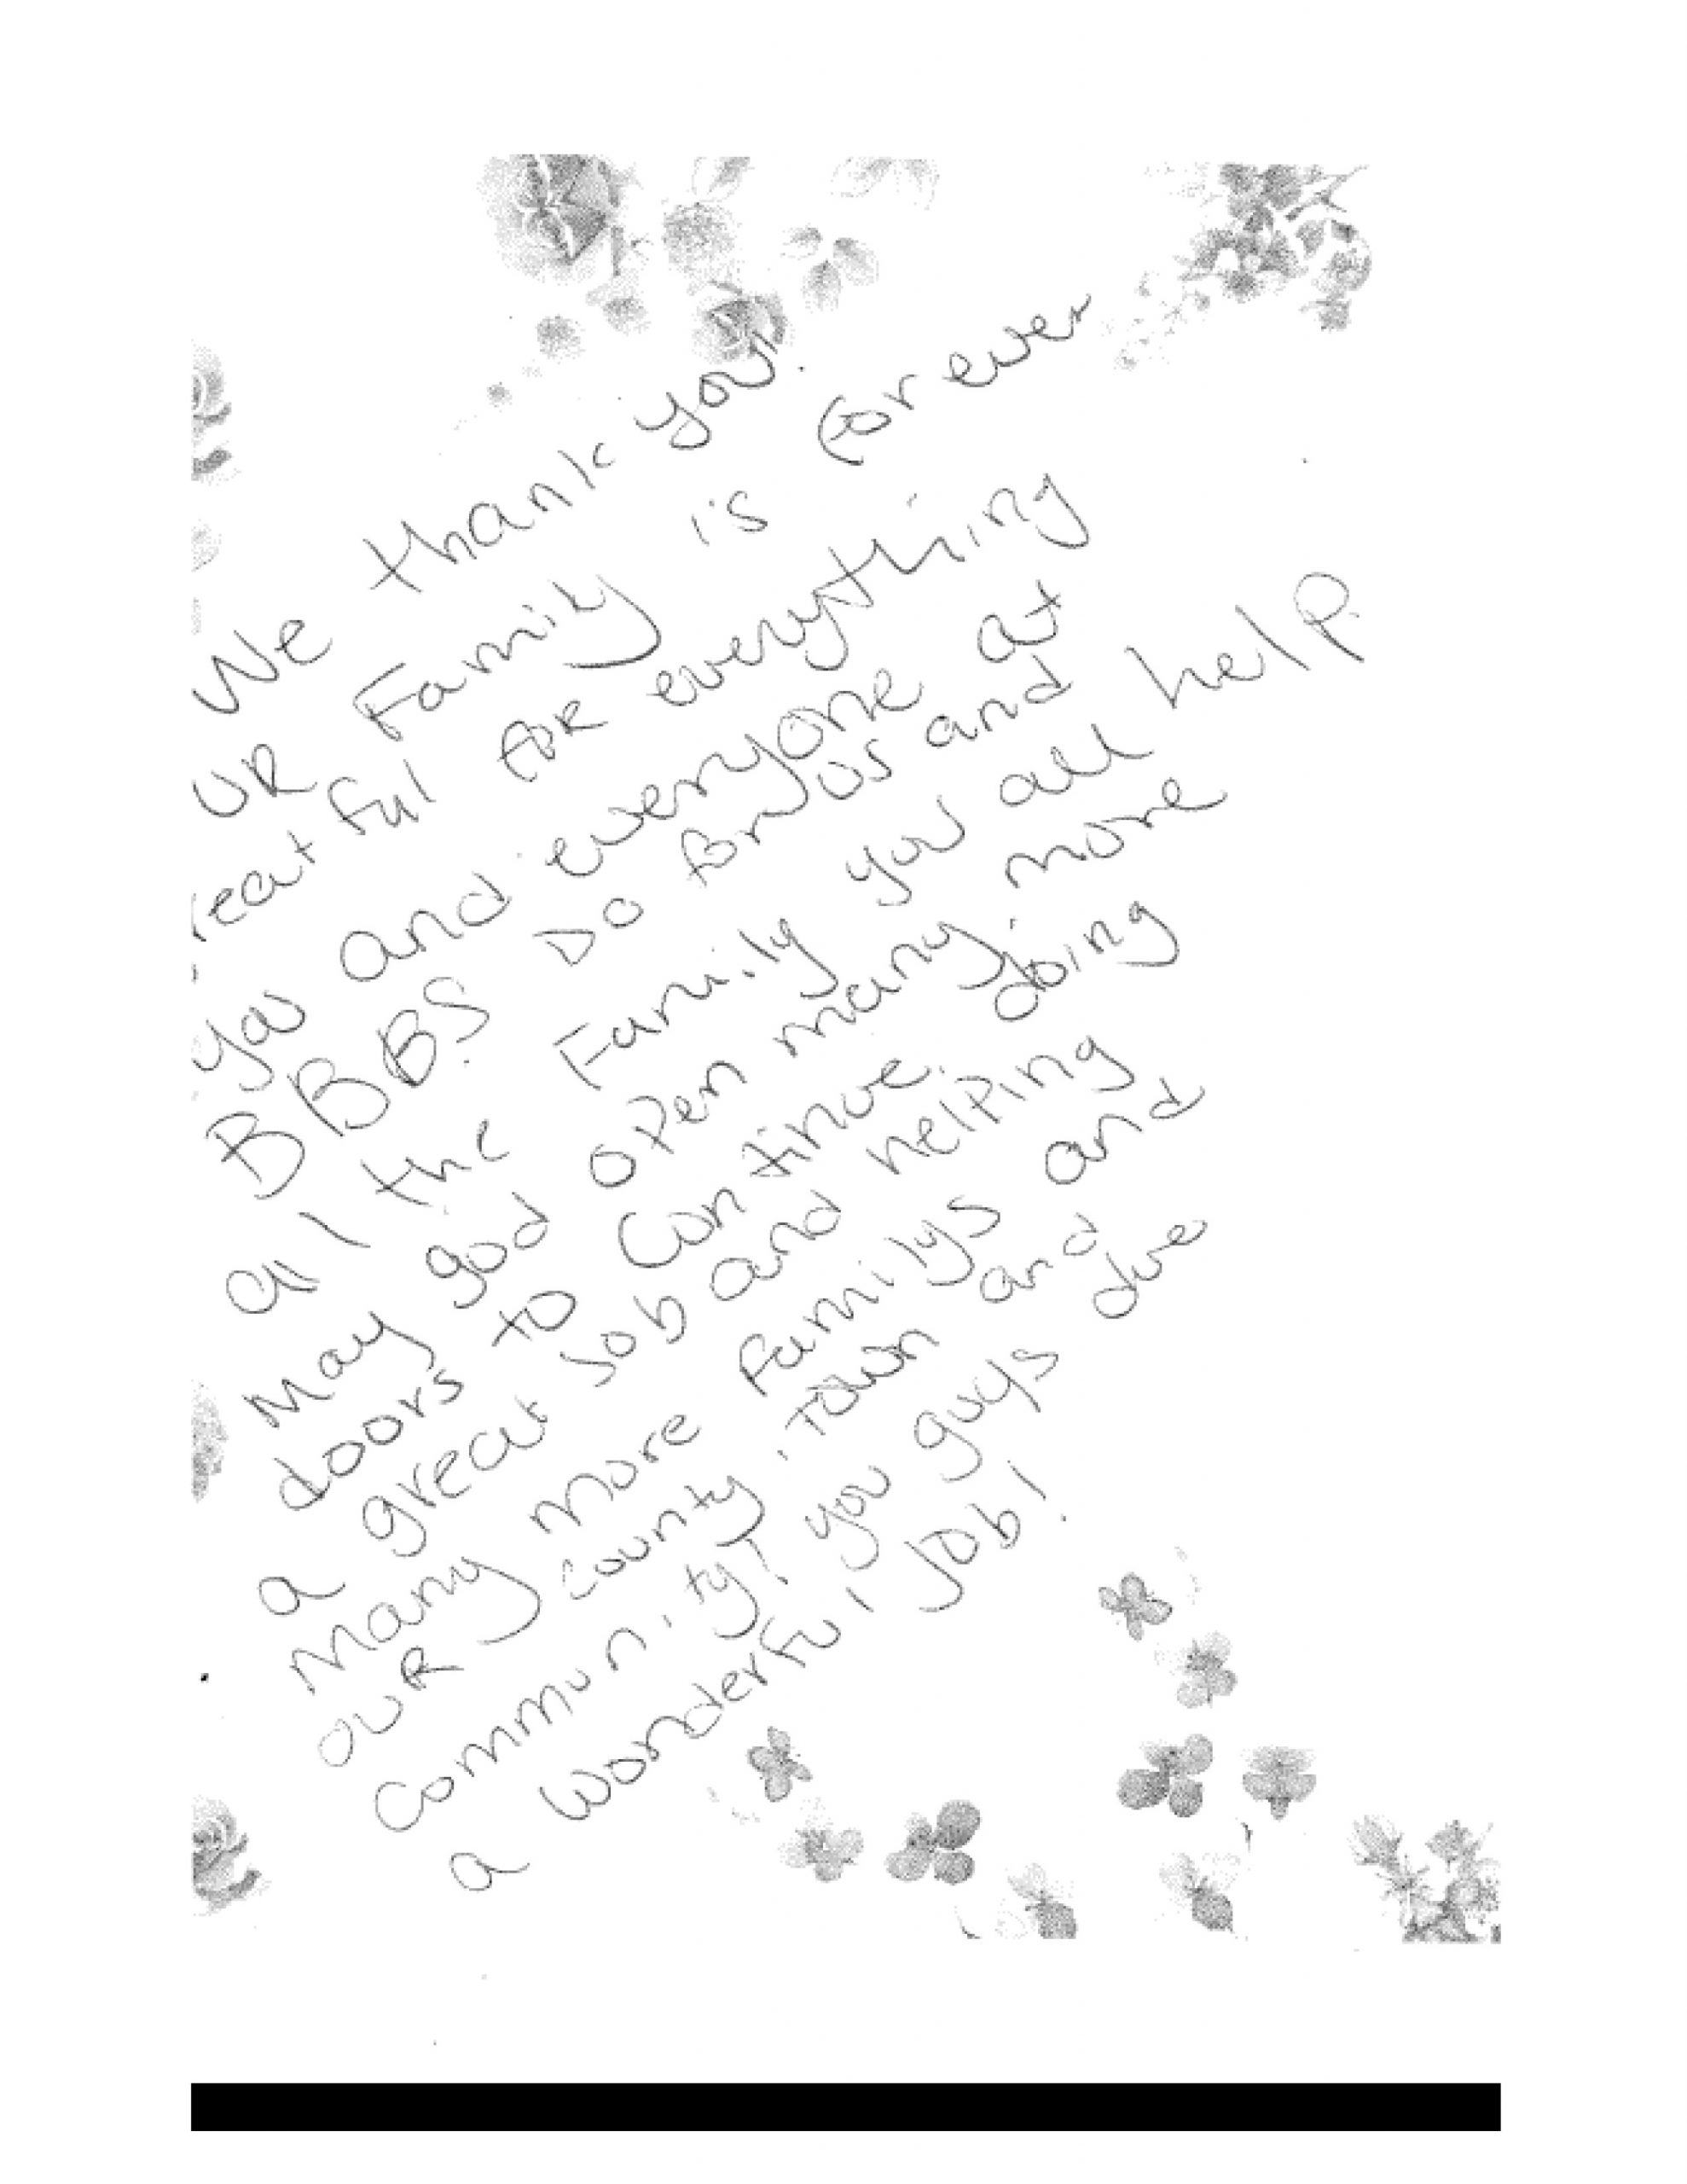 We thank you!
UR Family is forever
reatful for everything
you and everyone at
BBBS Do for us and
all the Family you all help
May god open many more
doors to continue doing
a great job and helping
many more familys and
OUR county, town and
community! you guys due
a wonderful job!